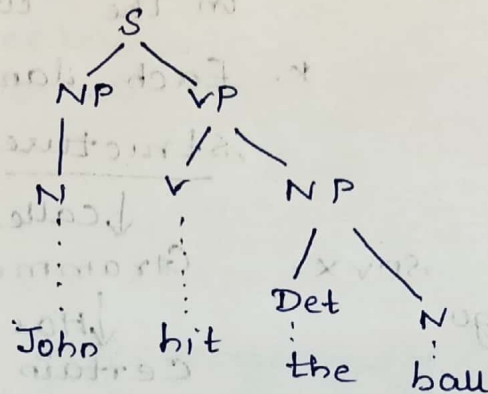 S
NP VP
N V NP
Det N
John hit the ball